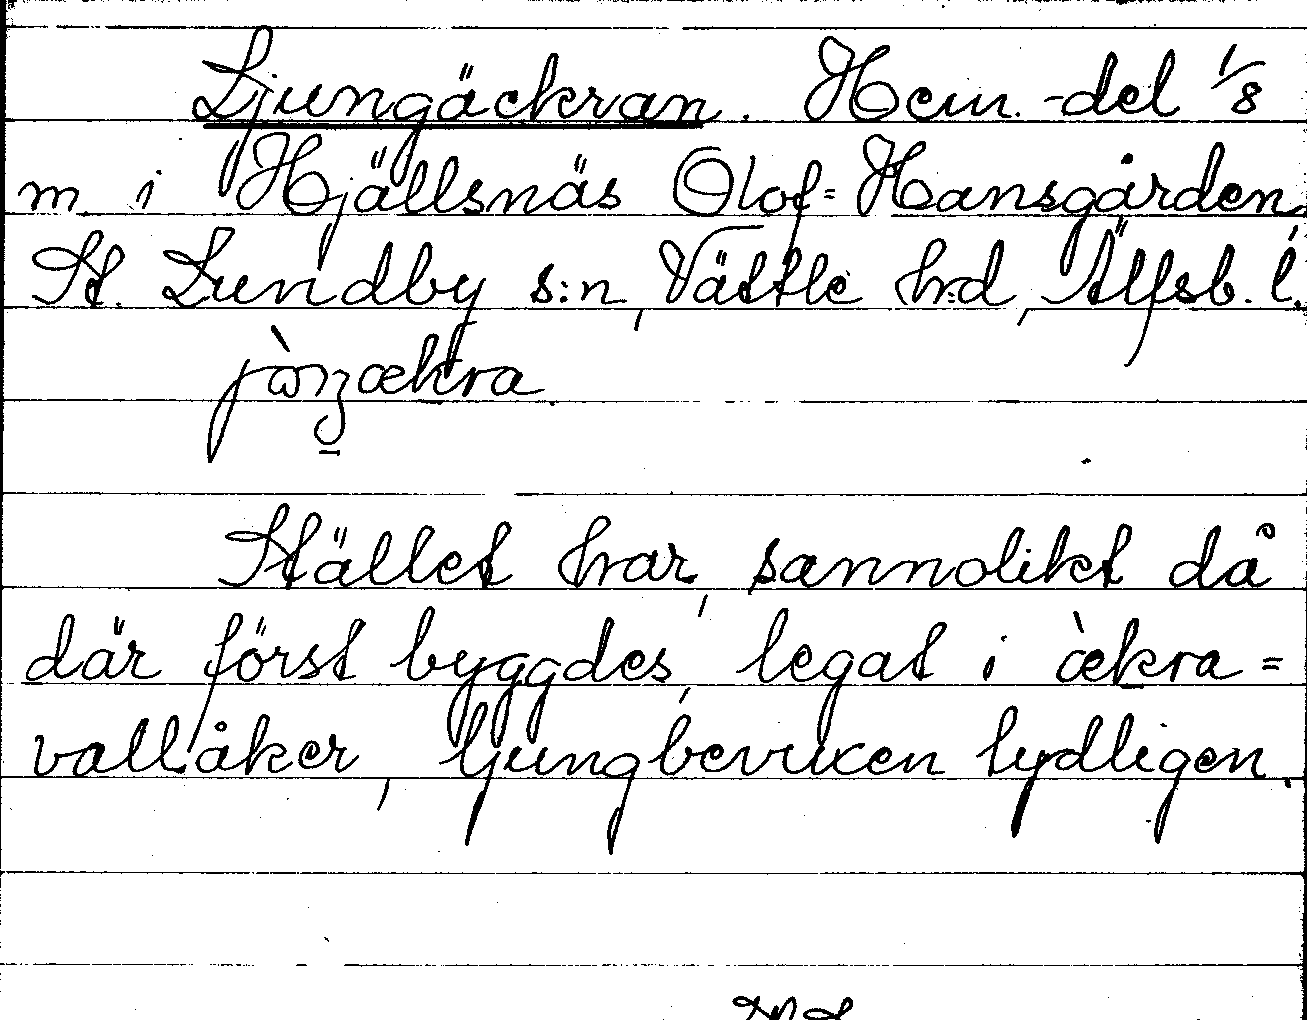 Ljungäckran. Hem.-del 1/8
m. i Hjällsnäs Olof=Hansgården,
St. Lundby s:n, Vättle h:d, Älfsb. l.
jòŋækra.
Stället har, sannolikt då
där först byggdes, legat i ækra=
vall.åker, ljungbevuxen tydligen.